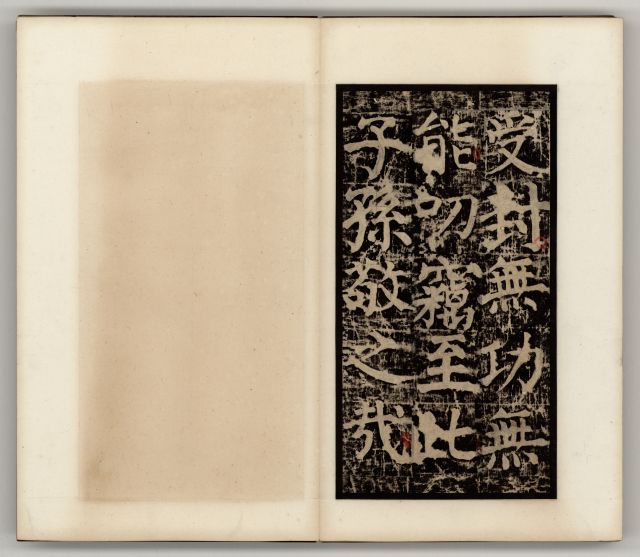 受封無功無
能叨竊至此
子孫敬之哉